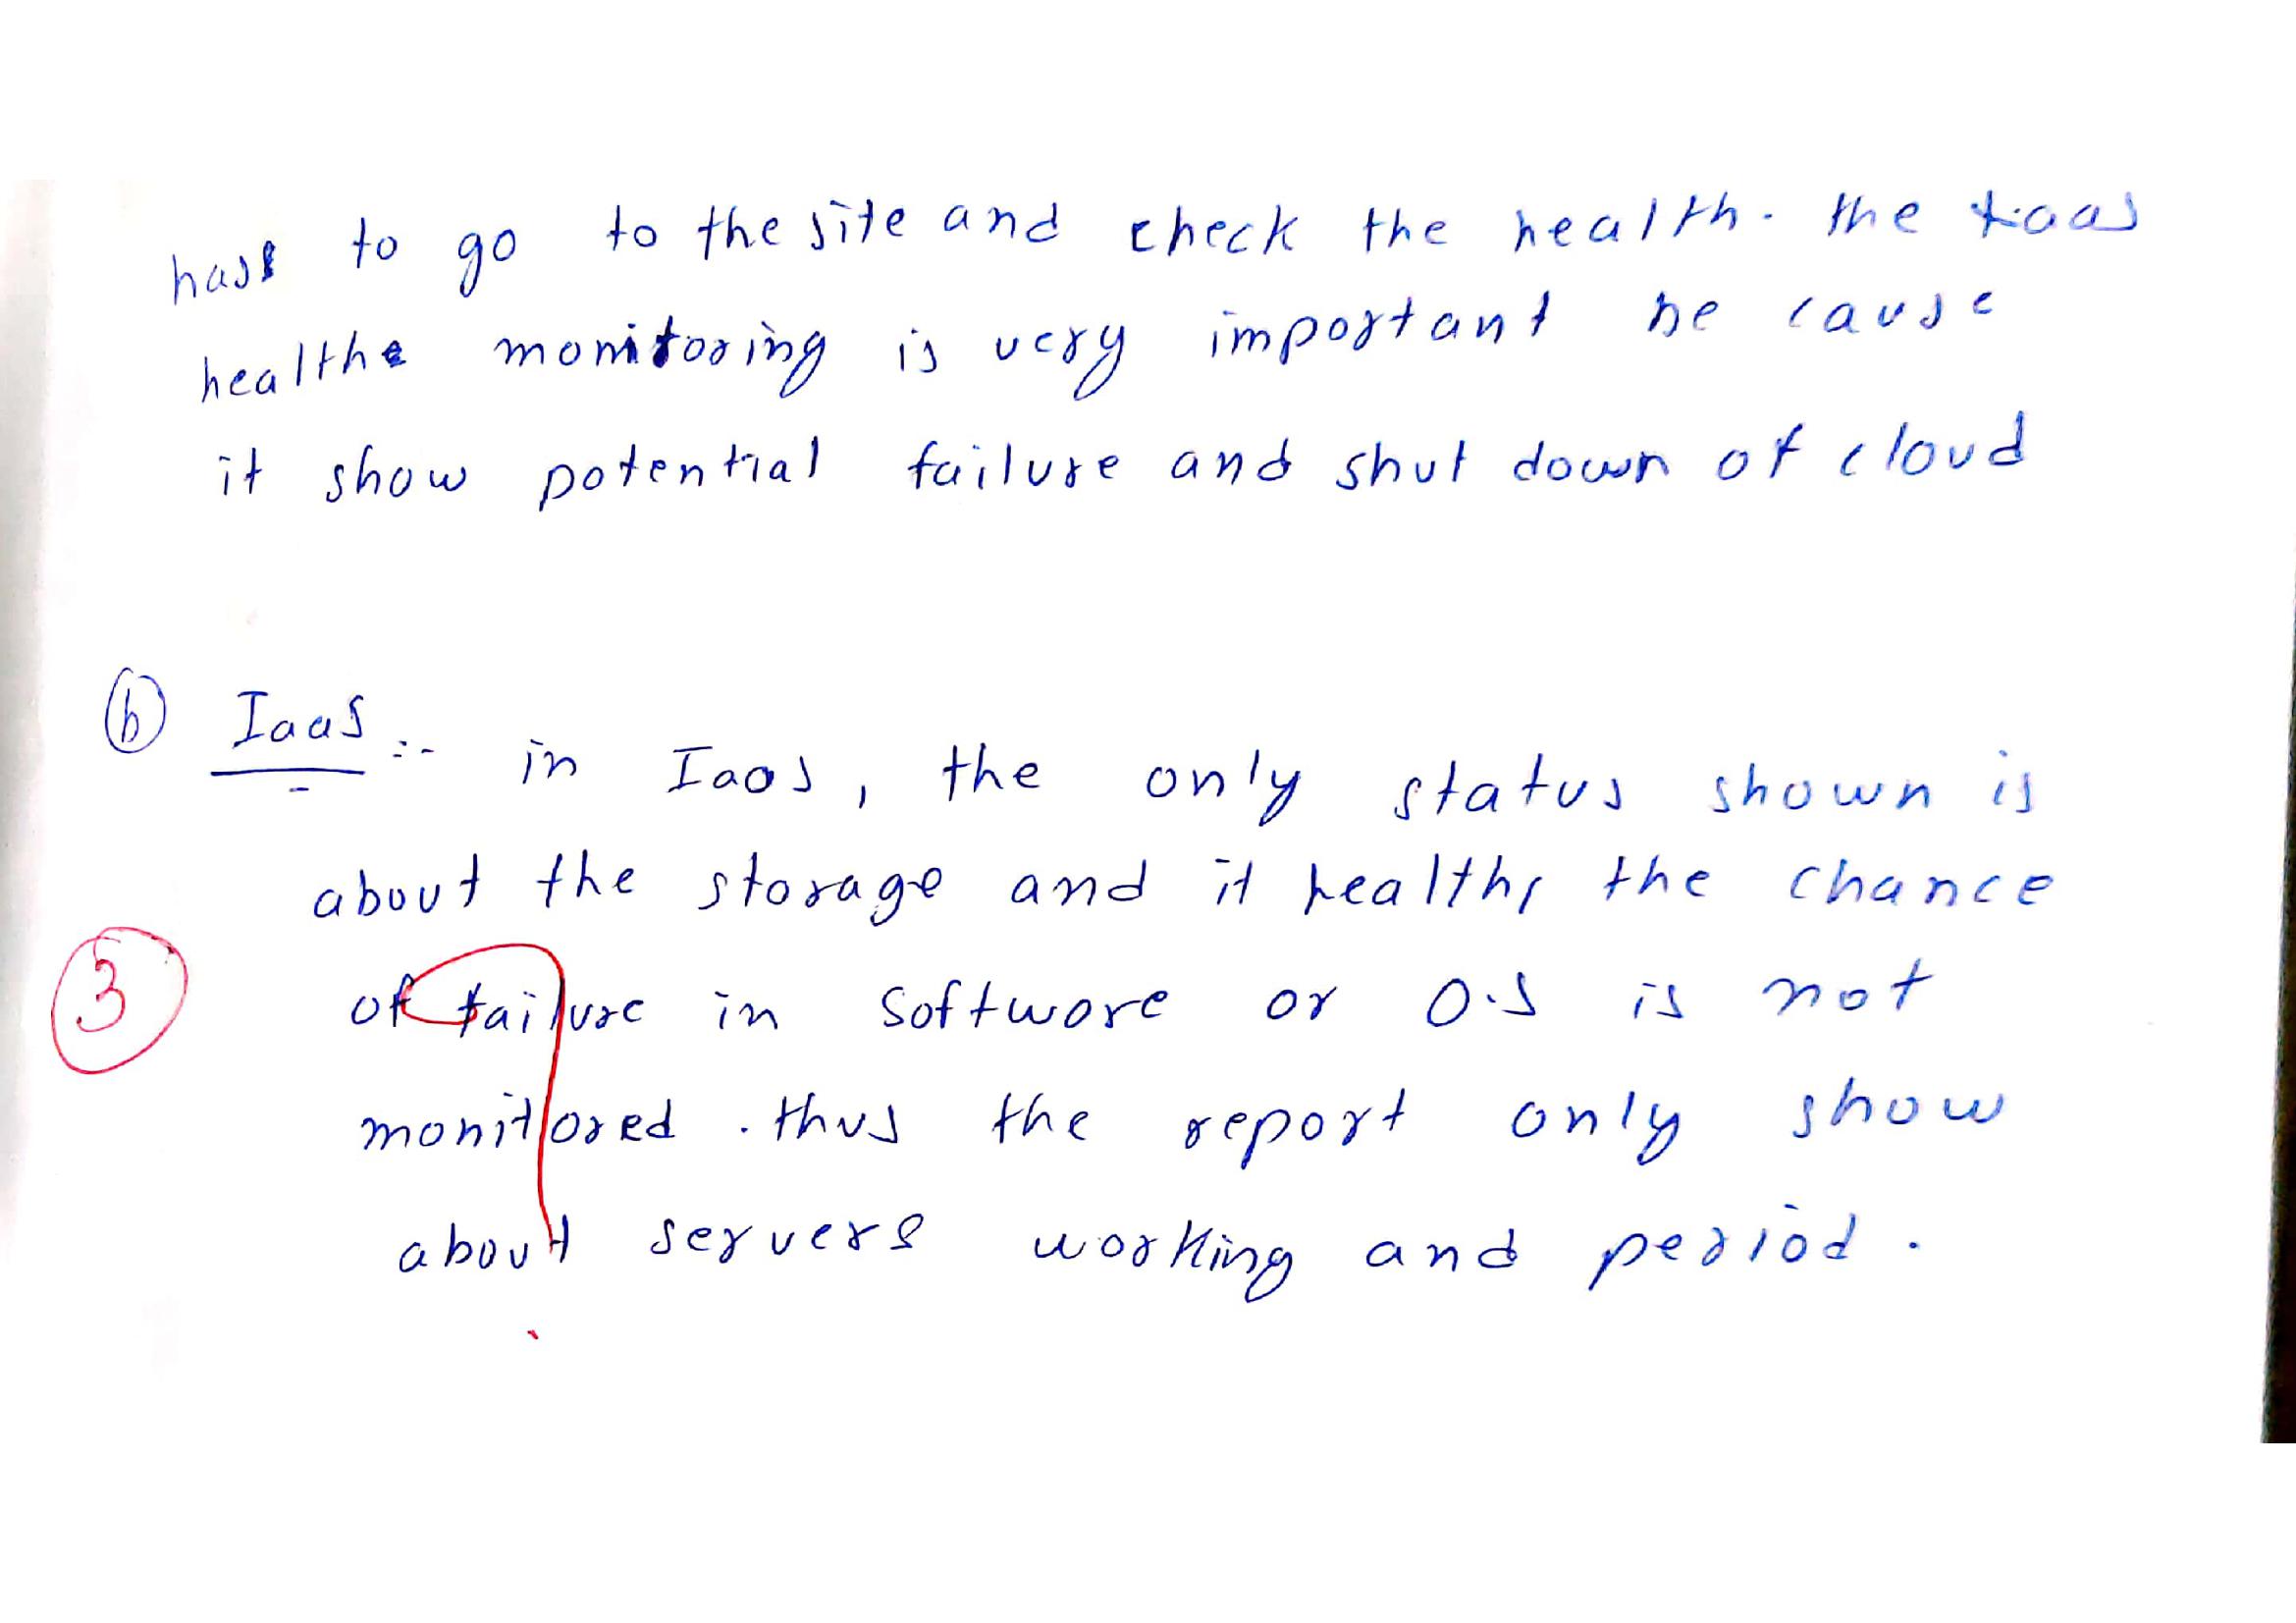 has to go to the site and check the health. the
healthe monitoring is very important be cause
it show potential failure and shut down of cloud
(b) IaaS :- in Iaas, the only status shown is
about the storage and it healths the chance
3 of failure in software or O.S is not
monitored . thus the report only show
about servers working and period .